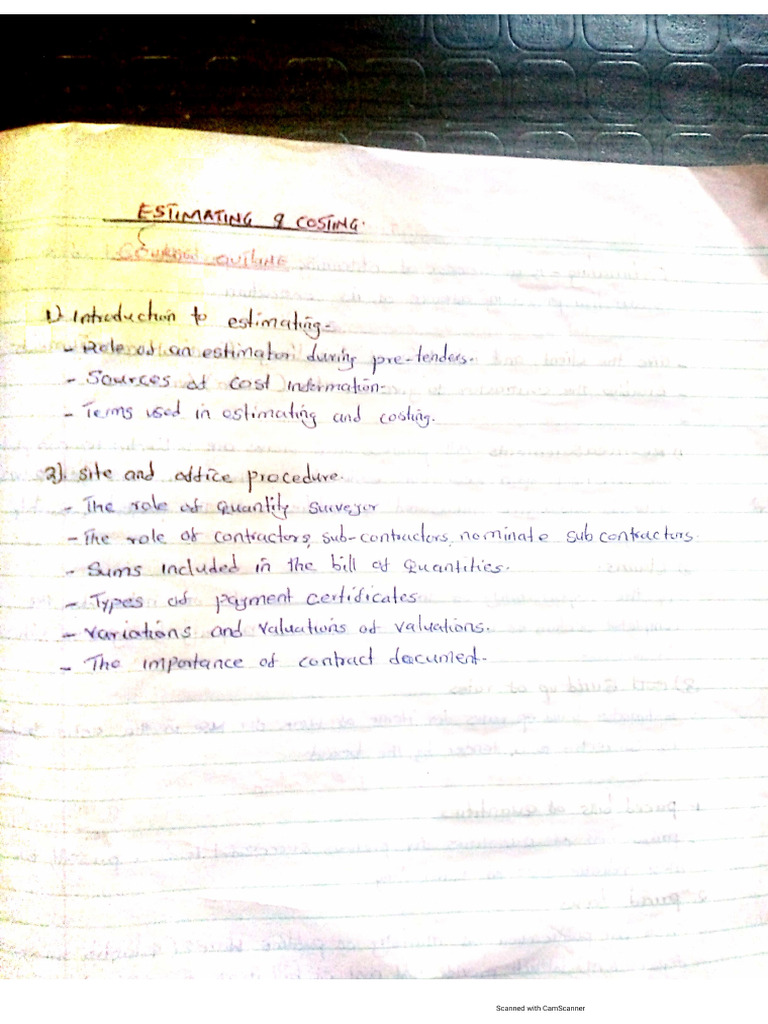 ESTIMATING & COSTING.
COURSE OUTLINE
1) Introduction to estimating-
- Role of an estimator during pre-tenders.
- Sources of cost information-
- Terms used in estimating and costing.
2). Site and office procedure.
- The role of Quantity Surveyor
- The role of contractors, sub-contractors, nominate sub contractors.
- Sums included in the bill of Quantities.
- Types of payment certificates
- Variations and valuations of valuations.
- The importance of contract document.
Scanned with CamScanner